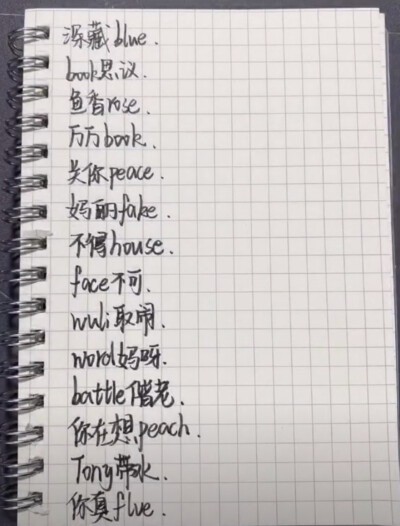 深藏blue.
book思议.
鱼香rose.
万万book.
关你peace.
妈丽fake.
不得house.
face不可.
wuli取闹.
word妈呀.
battle偕老.
你在想peach.
Tony带水.
你真flue.